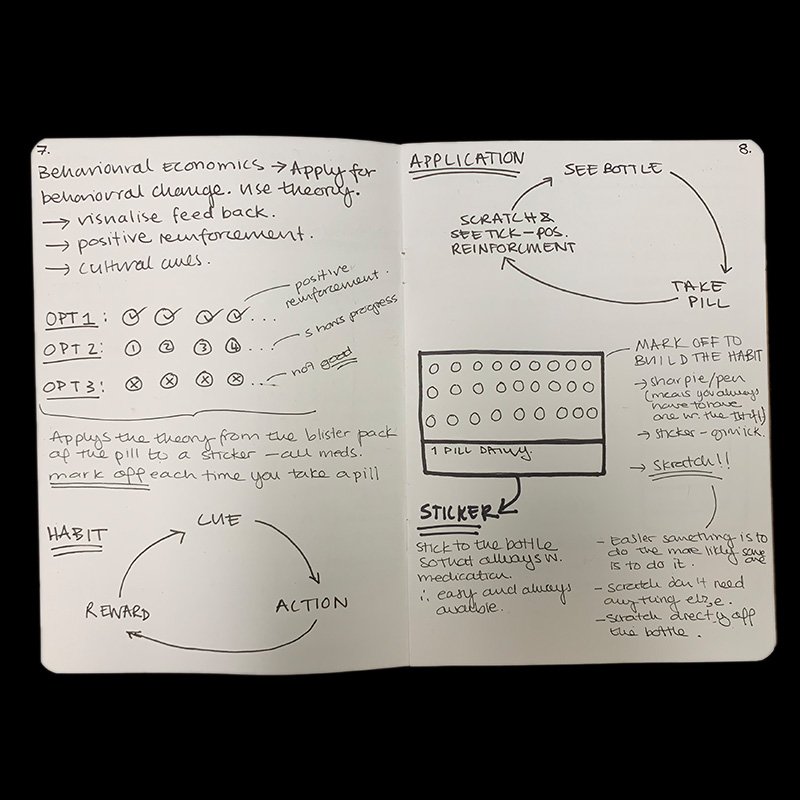 7.
Behavioural Economics → Apply for
behavioural change. use theory.
→ visualise feed back.
→ positive reinforcement.
→ cultural cues.
OPT 1: ...
positive
reinforcement.
OPT 2: 1 2 3 4 ...
shows progress
OPT 3: x x x x ...
not good
Applys the theory from the blister pack
of the pill to a sticker – all meds.
mark off each time you take a pill
HABIT
CUE
ACTION
REWARD
8.
APPLICATION
SEE BOTTLE
TAKE
PILL
SCRATCH &
SEE TICK – POS.
REINFORCMENT
1 PILL DAILY.
MARK OFF TO
BUILD THE HABIT
→ sharpie/pen
(means you always
have to have
one w. the
→ sticker – gimick.
→ Skratch!!
STICKER
STICK TO THE BOTTLE
SO THAT ALWAYS W.
MEDICATION.
∴ easy and always
– Easier something is to
do the more likely some
one
is to do it.
– scratch don't need
anything else.
– scratch directly off
the bottle.